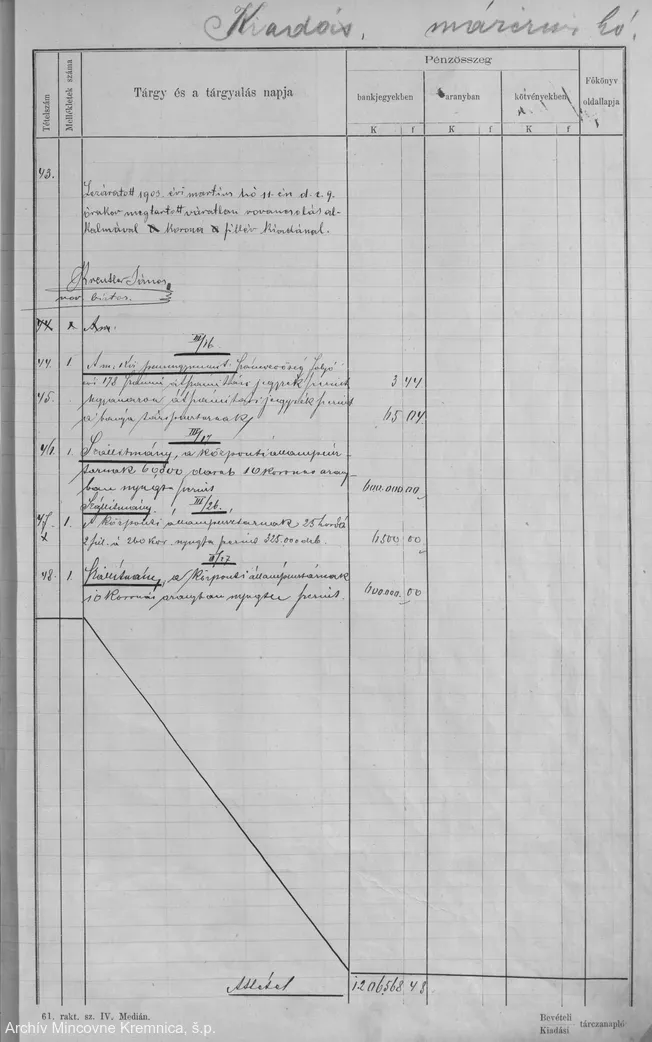 Kiadás, március hó.
Tételszám
Mellékletek száma
Tárgy és a tárgyalás napja
Pénzösszeg
bankjegyekben
aranyban
kötvényekben
Főkönyv oldallapja
K f K f K f
43.
Lezáratott 1903. évi martius hó 11. én d. e. 9.
órakor megtartott váratlan rovancsolás al-
kalmával korona fillér kiadásnál.
János
III/16
44. 1. A m. kir. folyó
évi 178 számú jegyzék szerint 3 44
45. Ugyanazon jegyzék szerint
a bánya 65 04
III/17
46. 1. Szállitmány, a központi állampénz-
tárnak 60000 darab 10 koronás arany-
ban nyugta szerint 600.000 00
Szállitmány. III/26.
47. 1. A központi állampénztárnak 25 hordó
2 fill. á 260 kor. nyugta szerint 325.000 drb. 6500 00
III/27
48. 1. Szállitmány, a központi állampénztárnak
10 koronás aranyban nyugta szerint. 600000. 00
Áttétel 1206568 48
61. rakt. sz. IV. Medián.
Bevételi
Kiadási
tárczanapló
Archív Mincovne Kremnica, š.p.